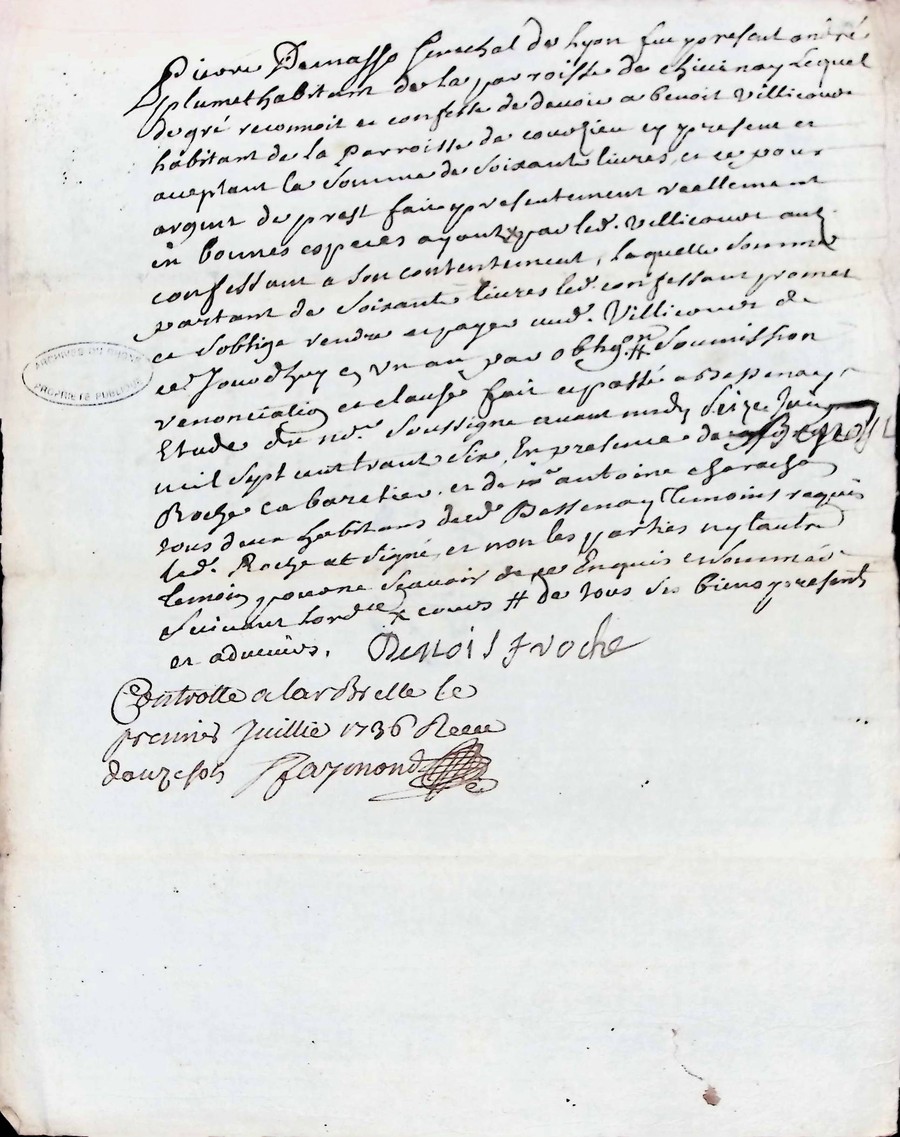 Pierre Demasso Senechal de Lyon fut present andré
plumet habitant de la parroisse de chivinay Lequel
de gré reconnoit et confesse de devoir a benoit Villicourt
habitant de la Parroisse de courzieu cy present et
acceptant la somme de soixante livres, et ce pour
argent de prest fait presentement reellement
en bonnes especes ayant x par led. Villicourt aud.
confessant a son contentement, laquelle somme
partant de soixante livres led. confessant promet
et soblige rendre et payer aud. Villicourt de
ce Jourdhuy en un an par oblig.on # soumission
renonciation et clause fait et passé a Bessenay
Etude du no.e soussigné avant midy Seize Juin
mil sept cent trente six, En presence de Benoist
Roche cabaretier, et de m.e antoine
tous deux habitans dud. Bessenay Temoins requis
led. Roche at signé, et non les parties ny lautre
Temoin pour ne scavoir de ce Enquis et sommés
suivant lord.ce x cours # de tous ses biens presents
et advenirs. Benoist roche
Controlle a larbrelle le
premier Juillie 1736 Receu
douze sols Raymond
ARCHIVES DU RHONE
PROPRIETE PUBLIQUE